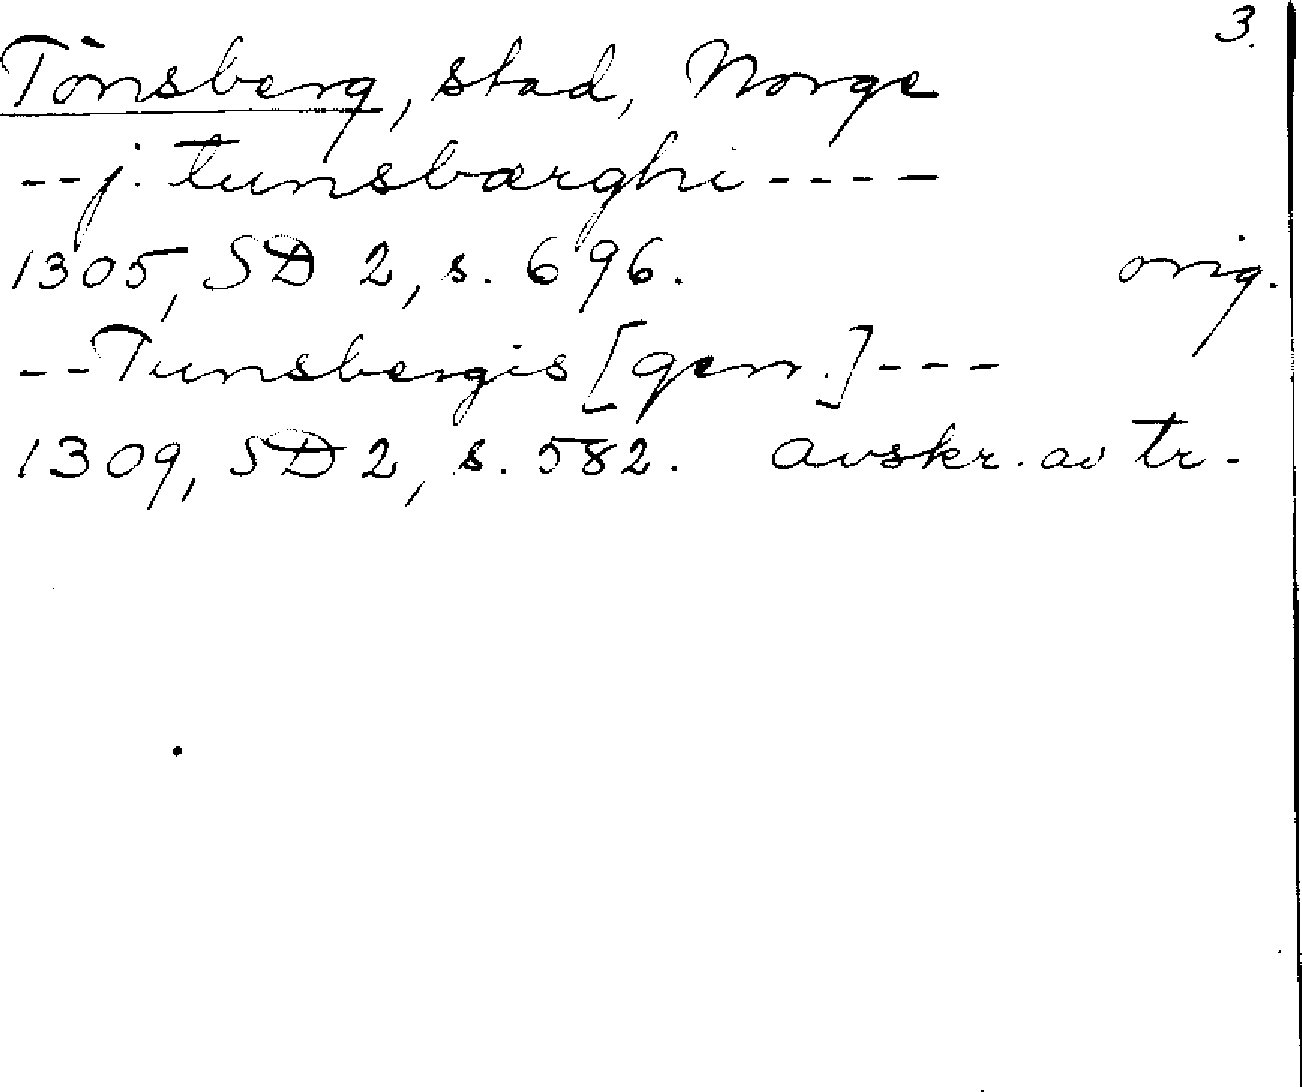 3.
Tönsberg, stad, Norge
--j. tunsbærghi----
1305, SD 2, s. 696. orig.
--Tunsbergis [gen.]---
1309, SD 2, s. 582. avskr. av tr.